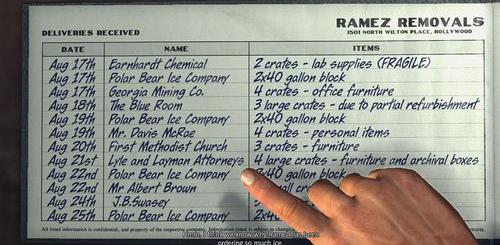 RAMEZ REMOVALS
DELIVERIES RECEIVED 1501 NORTH WILTON PLACE, HOLLYWOOD
DATE NAME ITEMS
Aug 17th Earnhardt Chemical 2 crates - lab supplies (FRAGILE)
Aug 17th Polar Bear Ice Company 2x40 gallon block
Aug 17th Georgia Mining Co. 4 crates - office furniture
Aug 18th The Blue Room 3 large crates - due to partial refurbishment
Aug 19th Polar Bear Ice Company 2x40 gallon block
Aug 19th Mr. Davis McRae 4 crates - personal items
Aug 20th First Methodist Church 3 crates - furniture
Aug 21st Lyle and Layman Attorneys 4 large crates - furniture and archival boxes
Aug 22nd Polar Bear Ice Company 40 gallon block
Aug 22nd Mr Albert Brown
Aug 24th J.B.Swasey
Aug 25th Polar Bear Ice Company
All listed information is confidential, and property of the respective company.
ordering so much ice